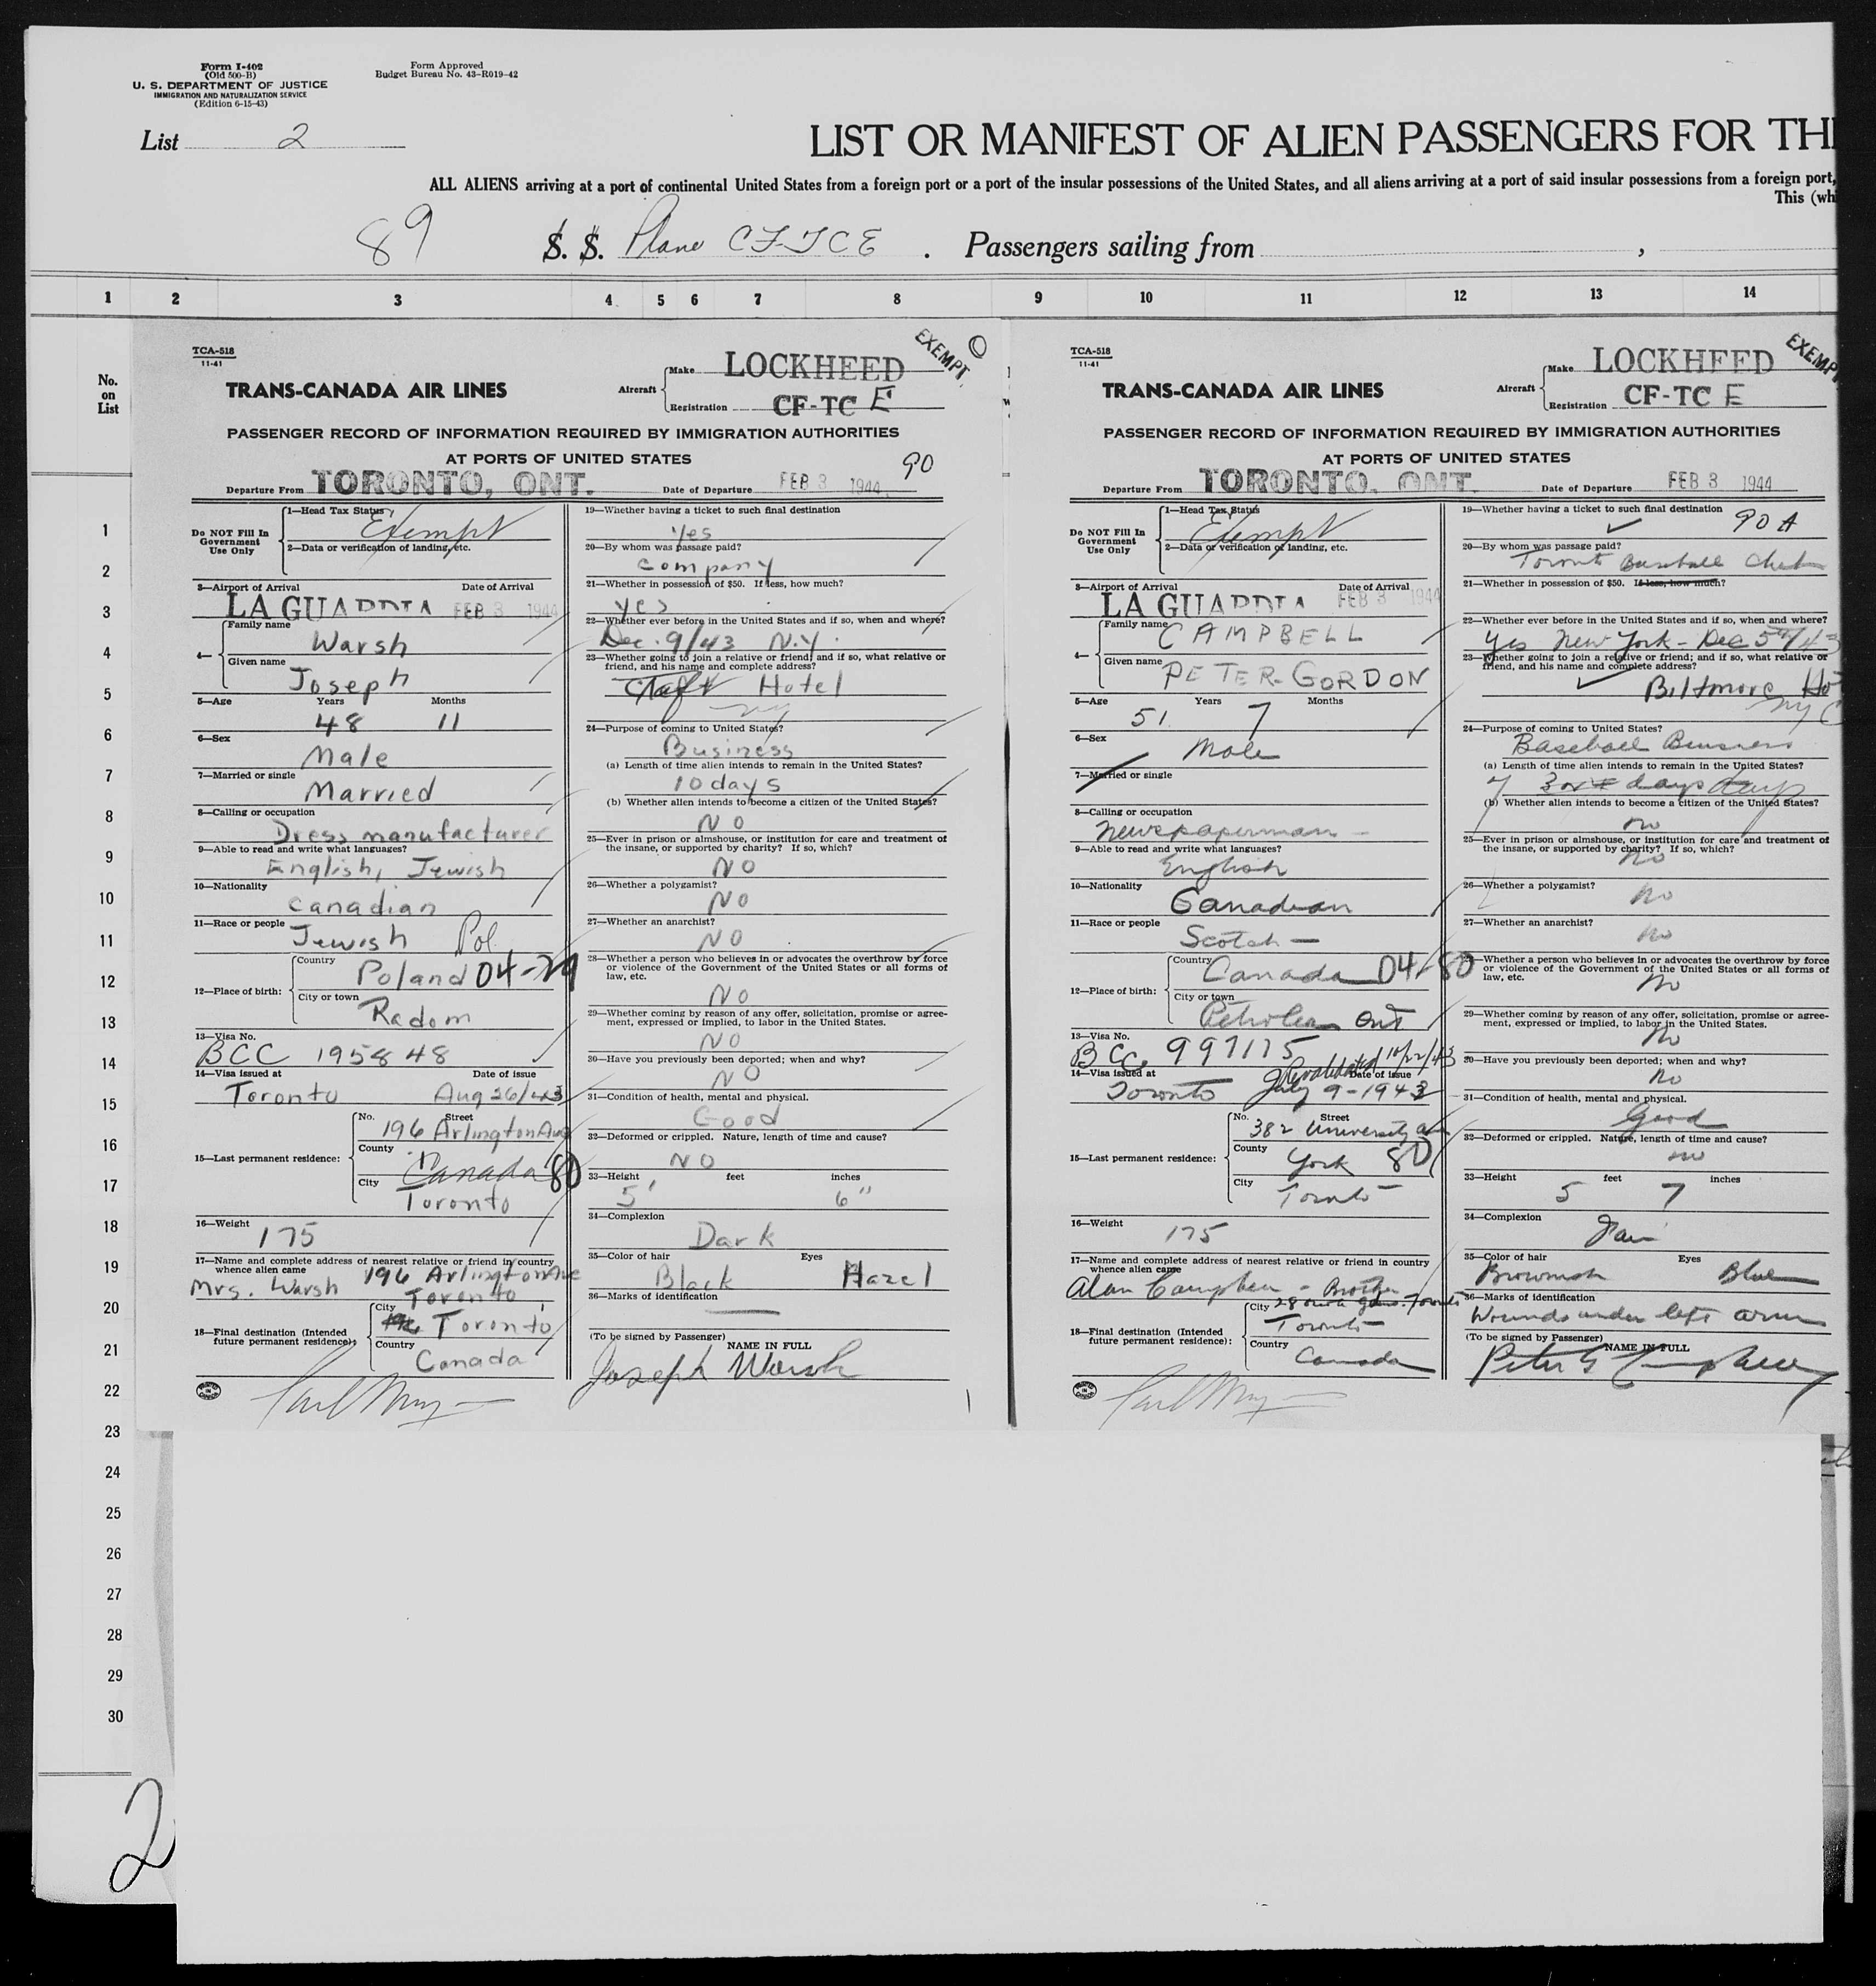 Form I-402
(Old 500-B)
U. S. DEPARTMENT OF JUSTICE
IMMIGRATION AND NATURALIZATION SERVICE
(Edition 6-15-43)
Form Approved
Budget Bureau No. 43-R019-42
List 2
LIST OR MANIFEST OF ALIEN PASSENGERS FOR TH
ALL ALIENS arriving at a port of continental United States from a foreign port or a port of the insular possessions of the United States, and all aliens arriving at a port of said insular possessions from a foreign port,
This (wh
89 S. S. Plane CF-TCE . Passengers sailing from ,
1 2 3 4 5 6 7 8 9 10 11 12 13 14
No.
on
List
1
2
3
4
5
6
7
8
9
10
11
12
13
14
15
16
17
18
19
20
21
22
23
24
25
26
27
28
29
30
2
TCA-518
11-41
EXEMPT
TRANS-CANADA AIR LINES
Aircraft
Make LOCKHEED
Registration CF-TC E
PASSENGER RECORD OF INFORMATION REQUIRED BY IMMIGRATION AUTHORITIES
AT PORTS OF UNITED STATES
90
Departure From TORONTO, ONT. Date of Departure FEB 3 1944
Do NOT Fill In
Government
Use Only
1—Head Tax Status
Exempt
2—Data or verification of landing, etc.
3—Airport of Arrival Date of Arrival
LA GUARDIA FEB 3 1944
4—
Family name
Warsh
Given name
Joseph
5—Age Years Months
48 11
6—Sex
Male
7—Married or single
Married
8—Calling or occupation
Dress manufacturer
9—Able to read and write what languages?
English, Jewish
10—Nationality
Canadian
11—Race or people
Jewish Pol
12—Place of birth:
Country
Poland 04-29
City or town
Radom
13—Visa No.
BCC 195848
14—Visa issued at Date of issue
Toronto Aug 26/43
15—Last permanent residence:
No. Street
196 Arlington Ave
County
Canada 80
City
Toronto
16—Weight
175
17—Name and complete address of nearest relative or friend in country
whence alien came
Mrs. Warsh 196 Arlington Ave
Toronto
18—Final destination (Intended
future permanent residence):
City
Toronto
Country
Canada
19—Whether having a ticket to such final destination
Yes
20—By whom was passage paid?
Company
21—Whether in possession of $50. If less, how much?
yes
22—Whether ever before in the United States and if so, when and where?
Dec. 9/43 N.Y.
23—Whether going to join a relative or friend; and if so, what relative or
friend, and his name and complete address?
Taft Hotel
NY
24—Purpose of coming to United States?
Business
(a) Length of time alien intends to remain in the United States?
10 days
(b) Whether alien intends to become a citizen of the United States?
NO
25—Ever in prison or almshouse, or institution for care and treatment of
the insane, or supported by charity? If so, which?
NO
26—Whether a polygamist?
NO
27—Whether an anarchist?
NO
28—Whether a person who believes in or advocates the overthrow by force
or violence of the Government of the United States or all forms of
law, etc.
NO
29—Whether coming by reason of any offer, solicitation, promise or agree-
ment, expressed or implied, to labor in the United States.
NO
30—Have you previously been deported; when and why?
NO
31—Condition of health, mental and physical.
Good
32—Deformed or crippled. Nature, length of time and cause?
NO
33—Height feet inches
5' 6"
34—Complexion
Dark
35—Color of hair Eyes
Black Hazel
36—Marks of identification
(To be signed by Passenger) NAME IN FULL
Joseph Warsh
TCA-518
11-41
EXEMPT
TRANS-CANADA AIR LINES
Aircraft
Make LOCKHEED
Registration CF-TC E
PASSENGER RECORD OF INFORMATION REQUIRED BY IMMIGRATION AUTHORITIES
AT PORTS OF UNITED STATES
Departure From TORONTO, ONT. Date of Departure FEB 3 1944
Do NOT Fill In
Government
Use Only
1—Head Tax Status
Exempt
2—Data or verification of landing, etc.
3—Airport of Arrival Date of Arrival
LA GUARDIA FEB 3 1944
4—
Family name
CAMPBELL
Given name
PETER-GORDON
5—Age Years Months
51 7
6—Sex
Male
7—Married or single
8—Calling or occupation
Newspaperman
9—Able to read and write what languages?
English
10—Nationality
Canadian
11—Race or people
Scotch
12—Place of birth:
Country
Canada 04-80
City or town
Petrolea Ont
13—Visa No.
BCC 997175
Revalidated 10/22/43
14—Visa issued at Date of issue
Toronto July 9-1943
15—Last permanent residence:
No. Street
382 University Ave
County
York 80
City
Toronto
16—Weight
175
17—Name and complete address of nearest relative or friend in country
whence alien came
Alan Campbell - Brother
28 Toronto
18—Final destination (Intended
future permanent residence):
City
Toronto
Country
Canada
19—Whether having a ticket to such final destination
90 A
20—By whom was passage paid?
Toronto Baseball Club
21—Whether in possession of $50. If less, how much?
22—Whether ever before in the United States and if so, when and where?
Yes New York - Dec 5th/43
23—Whether going to join a relative or friend; and if so, what relative or
friend, and his name and complete address?
Biltmore Ho
NYC
24—Purpose of coming to United States?
Baseball Business
(a) Length of time alien intends to remain in the United States?
7 3 or 4 days days
(b) Whether alien intends to become a citizen of the United States?
no
25—Ever in prison or almshouse, or institution for care and treatment of
the insane, or supported by charity? If so, which?
no
26—Whether a polygamist?
no
27—Whether an anarchist?
no
28—Whether a person who believes in or advocates the overthrow by force
or violence of the Government of the United States or all forms of
law, etc.
no
29—Whether coming by reason of any offer, solicitation, promise or agree-
ment, expressed or implied, to labor in the United States.
no
30—Have you previously been deported; when and why?
no
31—Condition of health, mental and physical.
Good
32—Deformed or crippled. Nature, length of time and cause?
no
33—Height feet inches
5 7
34—Complexion
Fair
35—Color of hair Eyes
Brownish Blue
36—Marks of identification
Wounds under left arm
(To be signed by Passenger) NAME IN FULL
Peter G Campbell